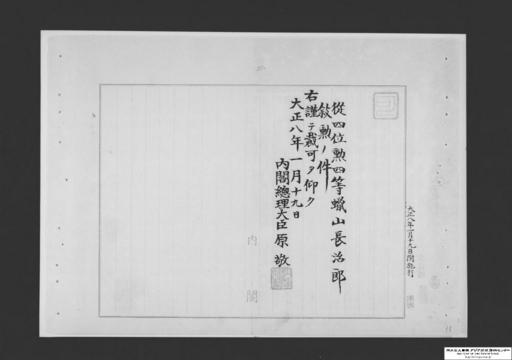 大正八年一月十九日閣批行
從四位勲四等蠟山長治郎
敍勲ノ件
右謹テ裁可ヲ仰ク
大正八年一月十九日
內閣總理大臣原敬
內閣